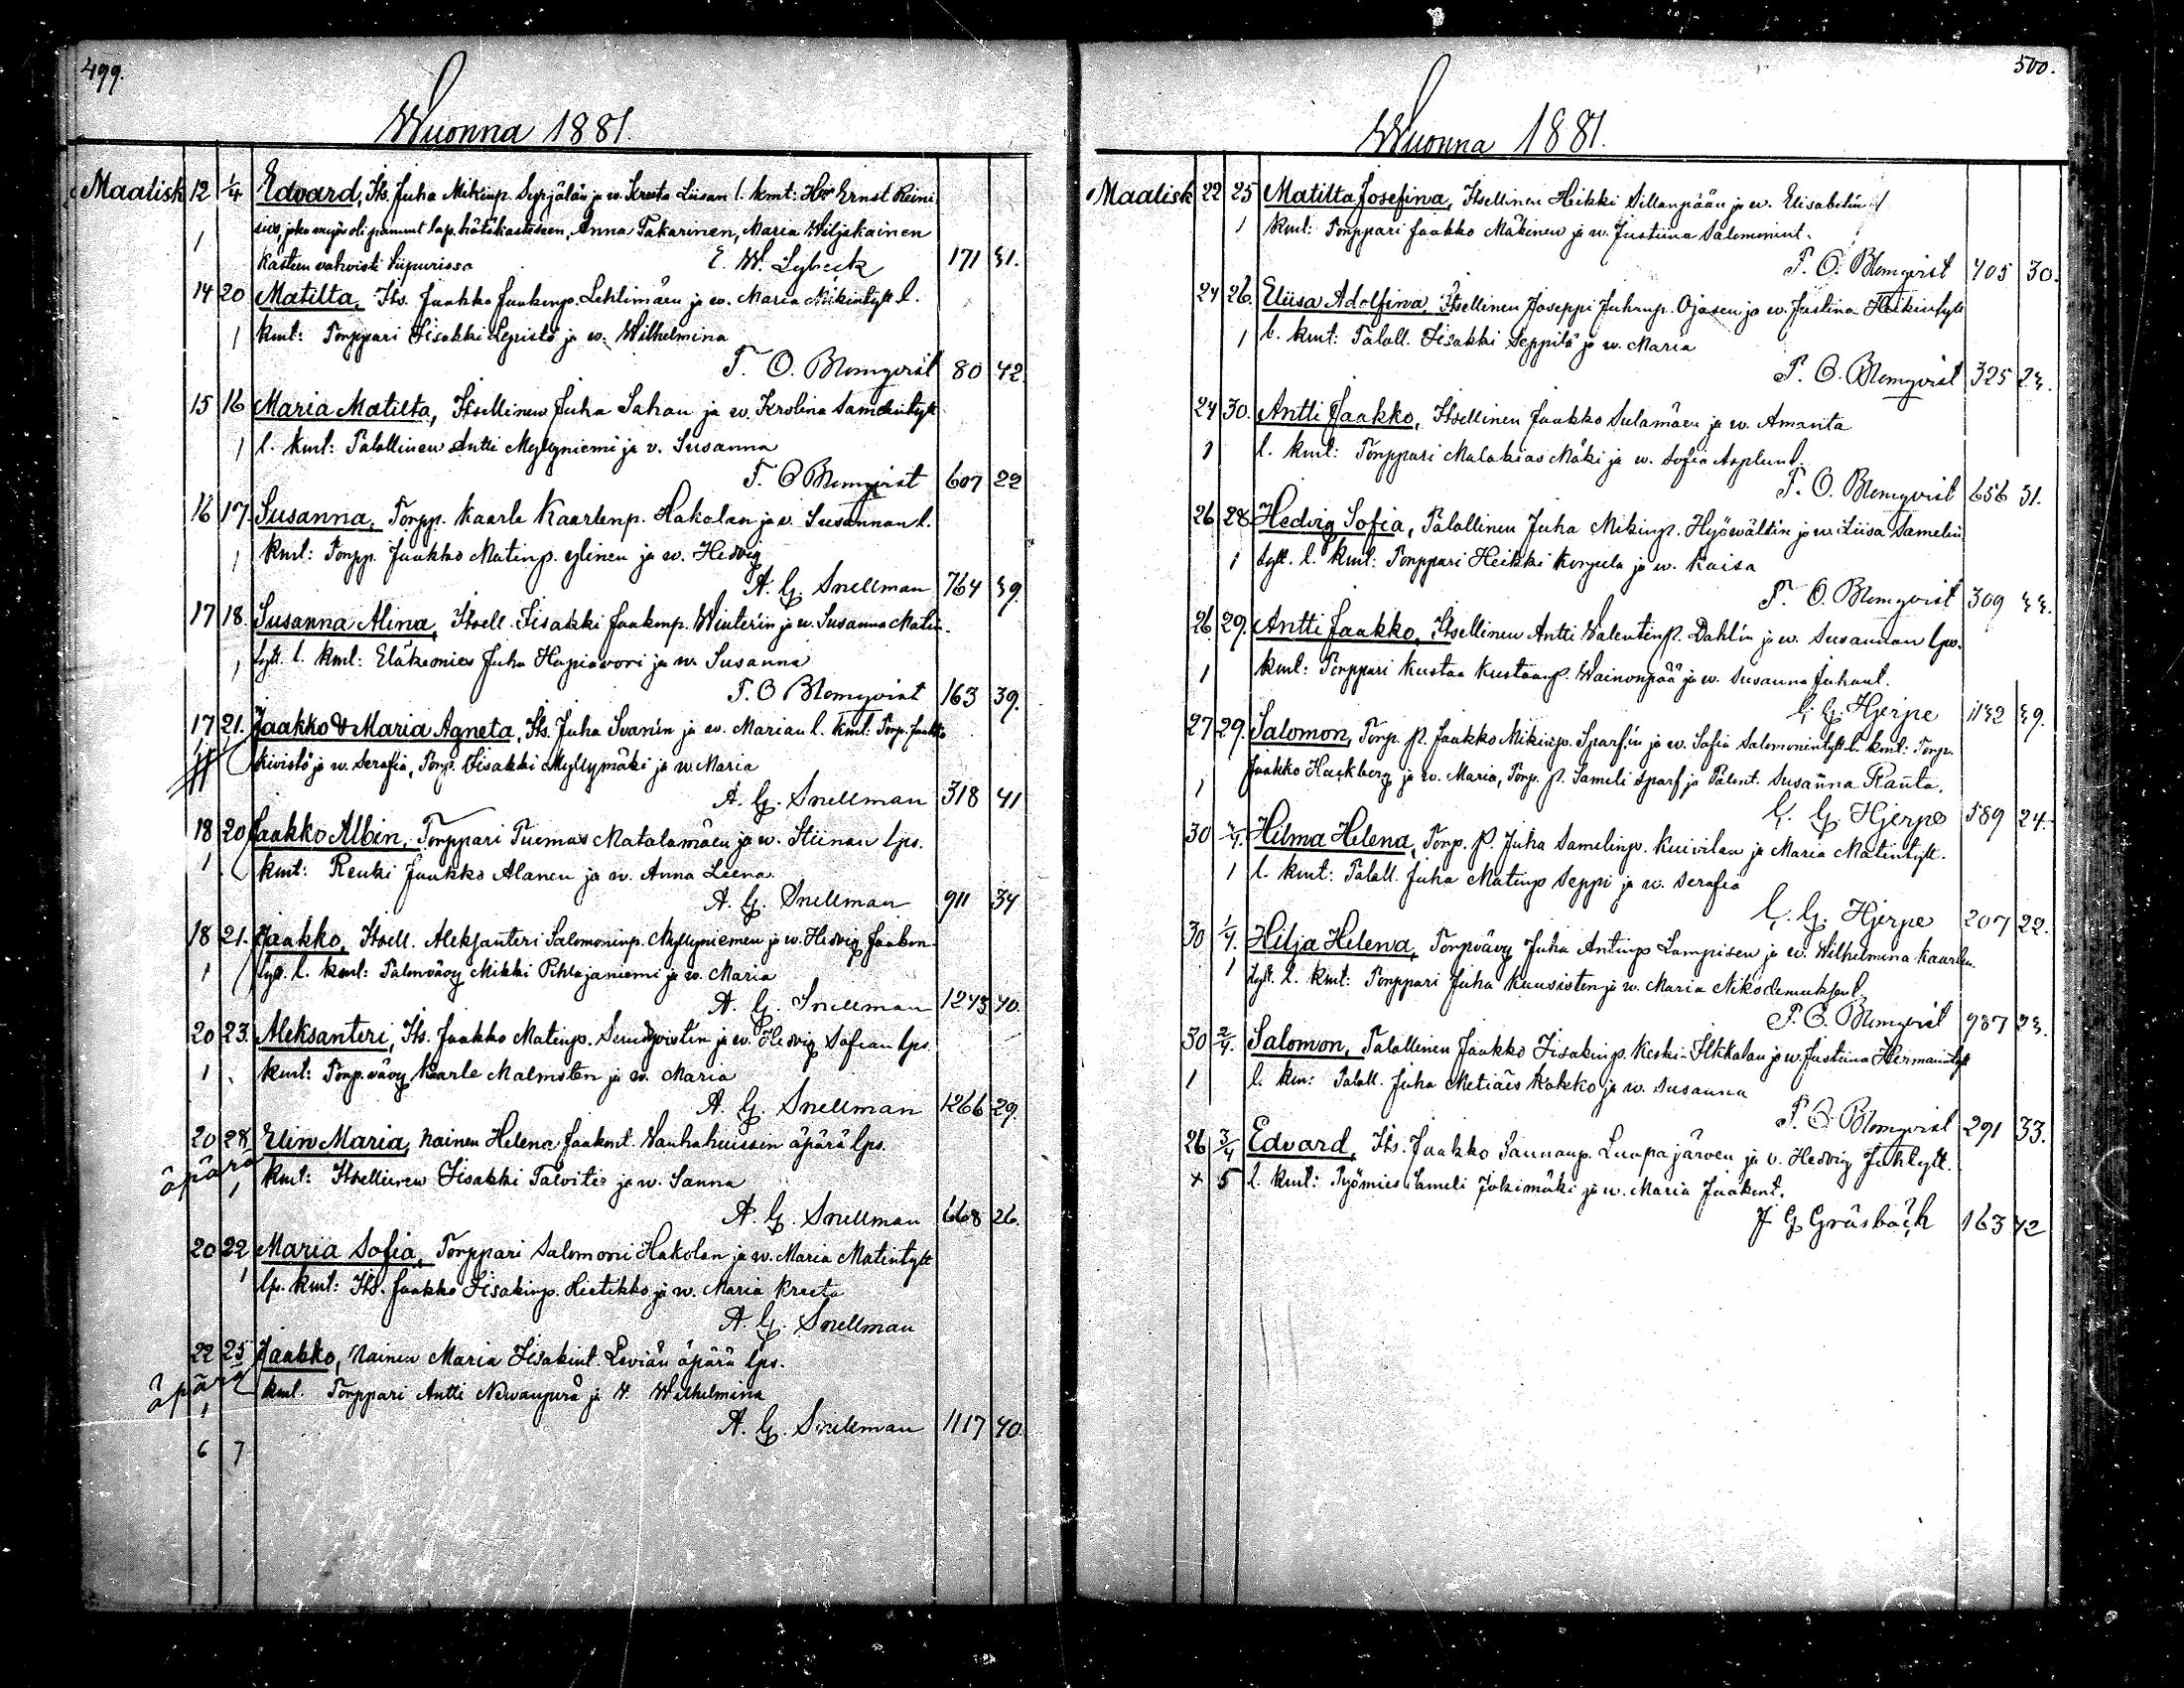 499.
Wuonna 1881.
Maalisk 12 1/4 Edvard, Its. Juha Mikinp. Syrjälän ja w. Kreeta Liisan l. kmt: Hra Ernst Reini
us, joka myös oli pannut lap. hätäkasteeseen, Anna Takarinen, Maria Wiljakainen
1 Kasteen vahvisti Siipurissa E. W. Lybeck 171 31.
14 20 Matilta, Its. Jaakko Jaakonp. Lehtimäen ja w. Maria Mikintytt. l.
1 kmt: Torppari Iisakki Lepistö ja w. Wilhelmina
T. O. Blomqvist 80 42.
15 16 Maria Matilta, Itsellinen Juha Sahan ja w. Krolina Samelintytt
1 l. kmt: Talollinen Antti Myllyniemi ja v. Susanna
T. O Blomqvist 607 22
16 17. Susanna, Torpp. Kaarle Kaarlenp. Hakolan ja v. Susannan l.
1 kmt: Torpp. Jaakko Matinp. Ylinen ja w. Hedvig
A. G. Snellman 764 39.
17 18. Susanna Alina, Itsell. Iisakki Jaakonp. Winterin ja w. Susanna Matin-
1 tytt. l. kmt: Eläkemies Juha Hapiavori ja w. Susanna
T. O Blomqvist 163 39.
17 21. Jaakko & Maria Agneta, Its. Juha Svanin ja w. Marian l. kmt: Torp. Jaakko
Kivistö ja w. Serafia, Torp. Iisakki Myllymäki ja w. Maria
A. G. Snellman 318 41
18 20 Jaakko Albin, Torppari Tuomas Matalamäen ja w. Stiinan lps.
1 kmt: Renki Jaakko Alanen ja w. Anna Leena
A. G. Snellman 911 34
18 21. Jaakko, Itsell. Aleksanteri Salomoninp. Myllyniemen ja w. Hedvig Jaakon-
1 tytt. l. kmt: Talonvävy Mikki Pihlajaniemi ja w. Maria
A. G. Snellman 1243 40.
20 23. Aleksanteri, Its. Jaakko Matinp. Sundqvistin ja w. Hedvig Sofian lps.
1 kmt: Torp. vävy Kaarle Malmsten ja w. Maria
A. G. Snellman 1266 29.
20 28 Elin Maria, Nainen Helena Jaakont. Wanhahuissen äpärä lps.
äpärä 1 kmt: Itsellinen Iisakki Talvitie ja w. Sanna
A. G. Snellman 668 26.
20 22 Maria Sofia, Torppari Salomoni Hakolan ja w. Maria Matintytt
1 lp. kmt: Its. Jaakko Iisakinp. Hietikko ja w. Maria Kreeta
A. G. Snellman
22 25 Jaakko, Nainen Maria Iisakint. Leviän äpärä lps.
äpärä 1 kmt. Torppari Antti Newanperä ja W. Wilhelmina
A. G. Snellman 1117 40.
6 7
500.
Wuonna 1881.
Maalisk 22 25 Matilta Josefina, Itsellinen Heikki Sillanpään ja w. Elisabetin l
1 kmt: Torppari Jaakko Mäkinen ja w. Justiina Salomonint.
T. O. Blomqvist 405 30.
24 26. Eliisa Adolfina, Itsellinen Joseppi Juhanp. Ojasen ja w. Justina Heikintytt
1 l. kmt: Taloll. Iisakki Seppilä ja w. Maria
T. O. Blomqvist 325 23.
24 30. Antti Jaakko, Itsellinen Jaakko Sulamäen ja w. Amanta
1 l. kmt: Torppari Malakias Mäki ja w. Sofia Asplund.
T. O. Blomqvist 656 31.
26 28. Hedvig Sofia, Talollinen Juha Mikinp. Hyöwältin ja w. Liisa Samelin
1 tytt. l. kmt: Torppari Heikki Korpela ja w. Kaisa
T. O. Blomqvist 309 33.
26 29. Antti Jaakko, Itsellinen Antti Valentinp. Dahlin ja w. Susannan lps.
1 kmt: Torppari Kustaa Kustaanp. Wainonpää ja w. Susanna Juhant.
G. G. Hjerpe 1132 39.
27 29. Salomon, Torp. p. Jaakko Mikinp. Sparfin ja w. Sofia Salomonintytt. l. kmt: Torp.
1 Jaakko Hackberg ja w. Maria, Torp. p. Sameli Sparf ja Talont. Susanna Ranta.
G. G. Hjerpe 589 24.
30 3/4. Hilma Helena, Torp. p. Juha Samelinp. Kuivilan ja Maria Matintytt.
1 l. kmt: Talall. Juha Matinp Seppi ja w. Serafia
G. G. Hjerpe 207 22.
30 1/4. Hilja Helena, Torpvävy Juha Antinp Lampisen ja w. Wilhelmina Kaarlen-
1 tytt. l. kmt: Torppari Juha Kuusisten ja w. Maria Nikodemuksent.
T. O. Blomqvist 987 23.
30 2/4. Salomon, Talollinen Jaakko Iisakinp. Keski-Iltikalan ja w. Justiina Hermanintytt
1 l. km: Talall. Juha Metiäis Kokko ja w. Susanna
T. O. Blomqvist 291 33.
26 3/4 Edvard, Its. Jaakko Jaunanp. Luopajärven ja v. Hedvig Juhtytt.
x 5 l. kmt: Työmies Sameli Jokimäki ja w. Maria Jaakont.
J G Gräsbäck 163 42